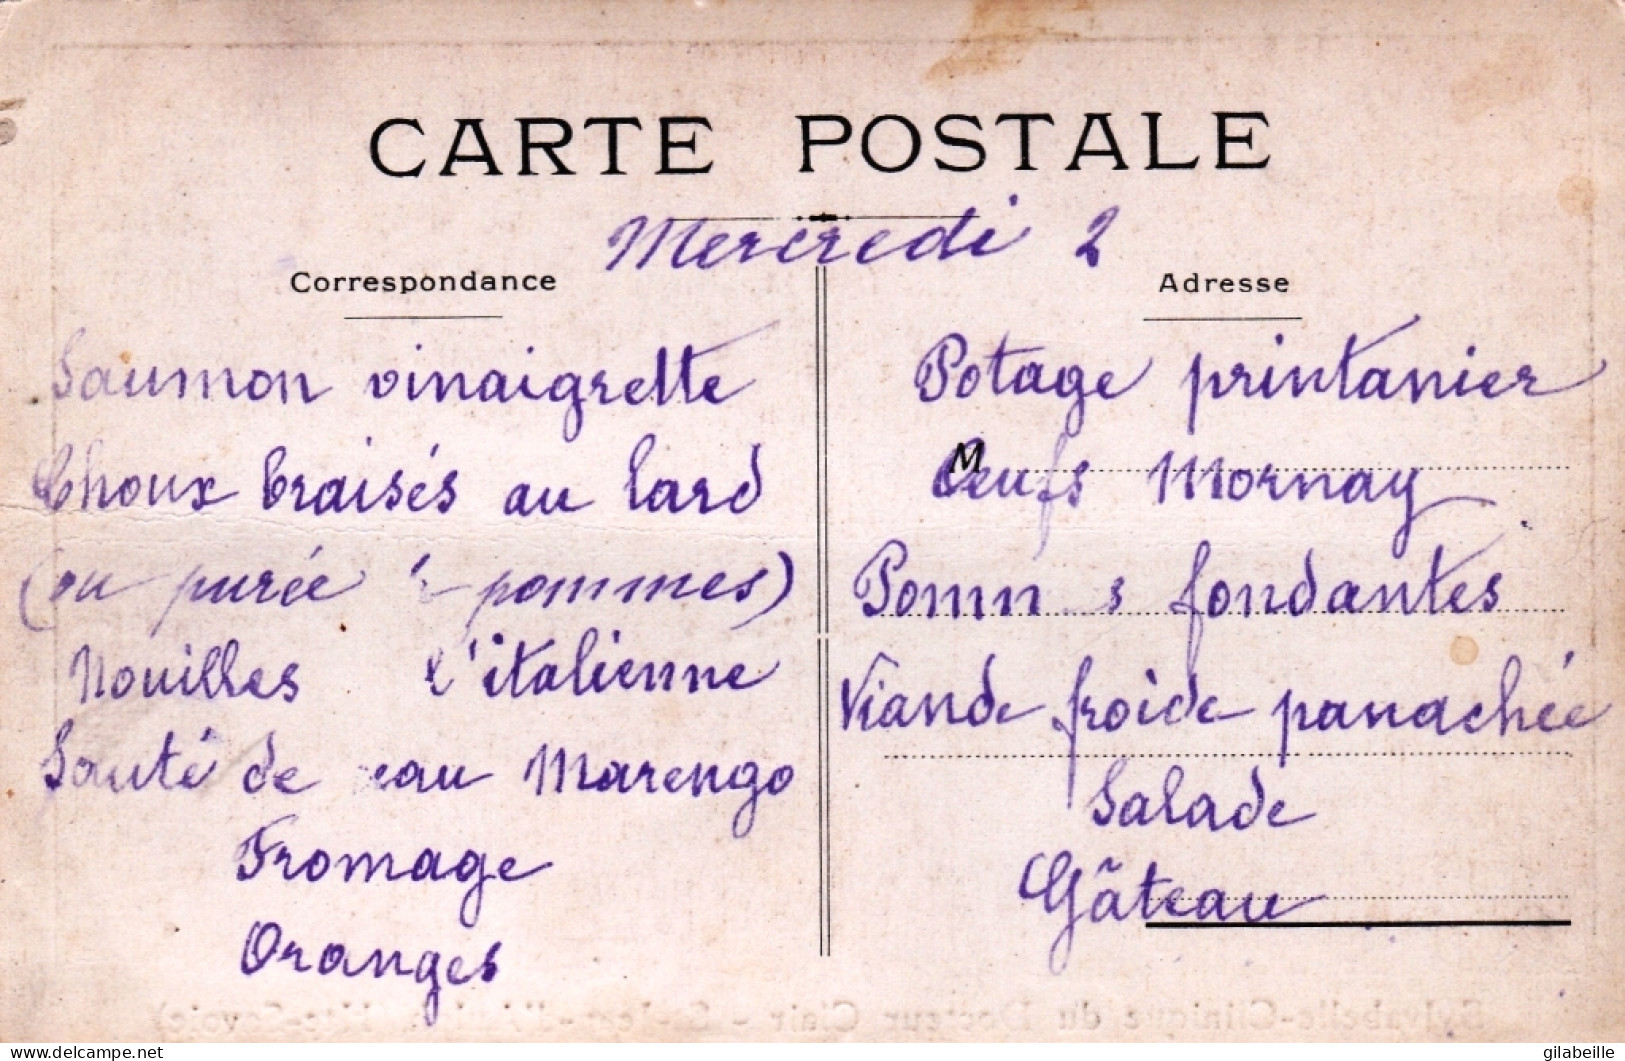 CARTE POSTALE
Mercredi 2
Correspondance
Saumon vinaigrette
Choux braisés au lard
(ou purée pommes)
Nouilles l'italienne
Sauté de eau Marengo
Fromage
Oranges
Adresse
Potage printanier
M
Oeufs Mornay
Pomm s fondantes
Viande froide panachée
Salade
Gâteau
Sylvabelle-Clinique du Docteur Clair - (Hte-Savoie)
delcampe.net
gilabeille